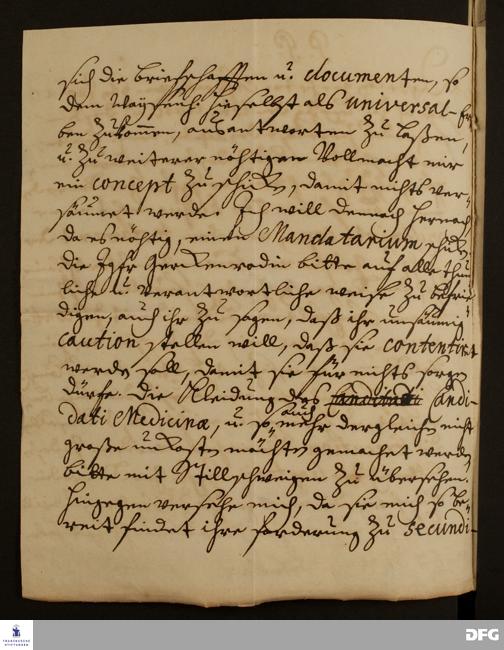 sich die briefschafften u. documenten, so
dem Waÿsenh. hieselbst als universal-Er-
ben zukom̅en, ausantworten zu laßen,
u. zu weiterer nöhtigen Vollmacht mir
ein concept zu schicken, damit nichts ver-
säumet werde. Ich will dennoch hernach,
da es nöhtig, einen Mandatarium schicken
die Jgfr Gerckenrodin bitte auf alle thun-
liche u. verantwortliche weise zu befrie-
digen, auch ihr zu sagen, daß ihr unsäumig
caution stellen will, daß sie contentirt
werden soll, damit sie für nichts sorgen
dürfe. Die Kleidung des Candi-
dati Medicinæ, u. so auch mehr dergleichen nicht
große unkosten möchten gemachet werden,
bitte mit Stillschweigen zu übersehen.
Hingegen versehe mich, da sie mich so be-
reit findet ihre forderung zu secundi-
FRANCKESCHE STIFTUNGEN
DFG